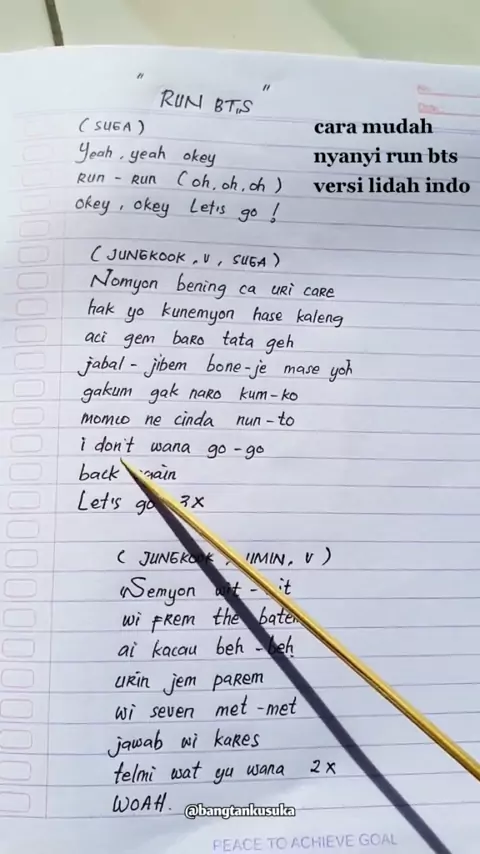 " RUN BTS "
cara mudah
nyanyi run bts
versi lidah indo
(SUGA)
Yeah, yeah okey
RUN - RUN (oh, oh, oh)
okey, okey Let's go !
(JUNGKOOK, V, SUGA)
Nomyon bening ca uri care
hak yo kunemyon hase kaleng
aci gem baro tata geh
jabal - jibem bone-je mase yoh
gakum gak naro kum-ko
momco ne cinda nun-to
i don't wana go-go
back again
Let's go 3x
(JUNGKOOK, JIMIN, V)
Semyon
wi frem the
ai kacau beh - beh
urin jem parem
wi seven met-met
jawab wi kares
telmi wat yu wana 2x
WOAH.
@bangtankusuka
PEACE TO ACHIEVE GOAL